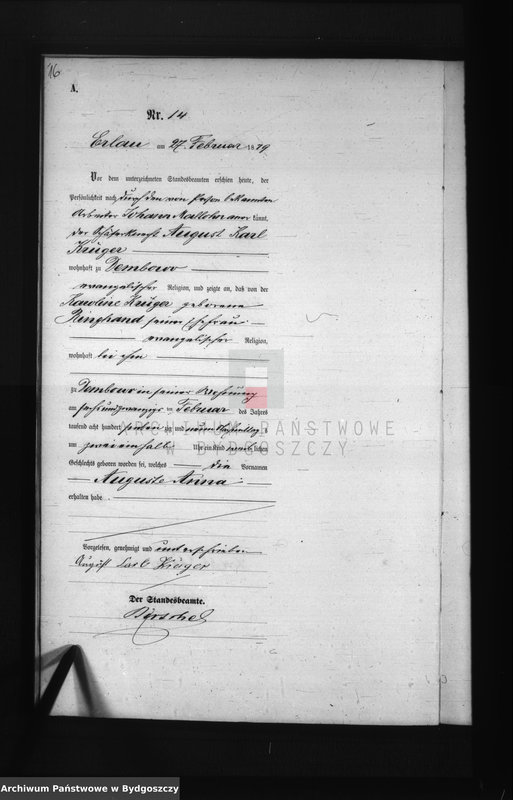 16
A.
Nr. 14
Erlau am 27. Februar 1879
Vor dem unterzeichneten Standesbeamten erschien heute, der
Persönlichkeit nach durch den von Person bekannten
Arbeiter Johann anerkannt,
der August Karl
Krüger
wohnhaft zu Dembowo
evangelischer Religion, und zeigte an, daß von der
Karoline Krüger geborene
Ringhand seiner Ehefrau
evangelischer Religion,
wohnhaft bei ihm
zu Dembowo in seiner Wohnung
am sechsundzwanzigsten Februar des Jahres
tausend acht hundert siebenzig und neun Nachmittags
um zweieinhalb Uhr ein Kind weiblichen
Geschlechts geboren worden sei, welches die Vornamen
Auguste Anna
erhalten habe.
Vorgelesen, genehmigt und unterschrieben
August Carl Krüger
Der Standesbeamte.
ARCHIWUM PAŃSTWOWE
W BYDGOSZCZY
Archiwum Państwowe w Bydgoszczy